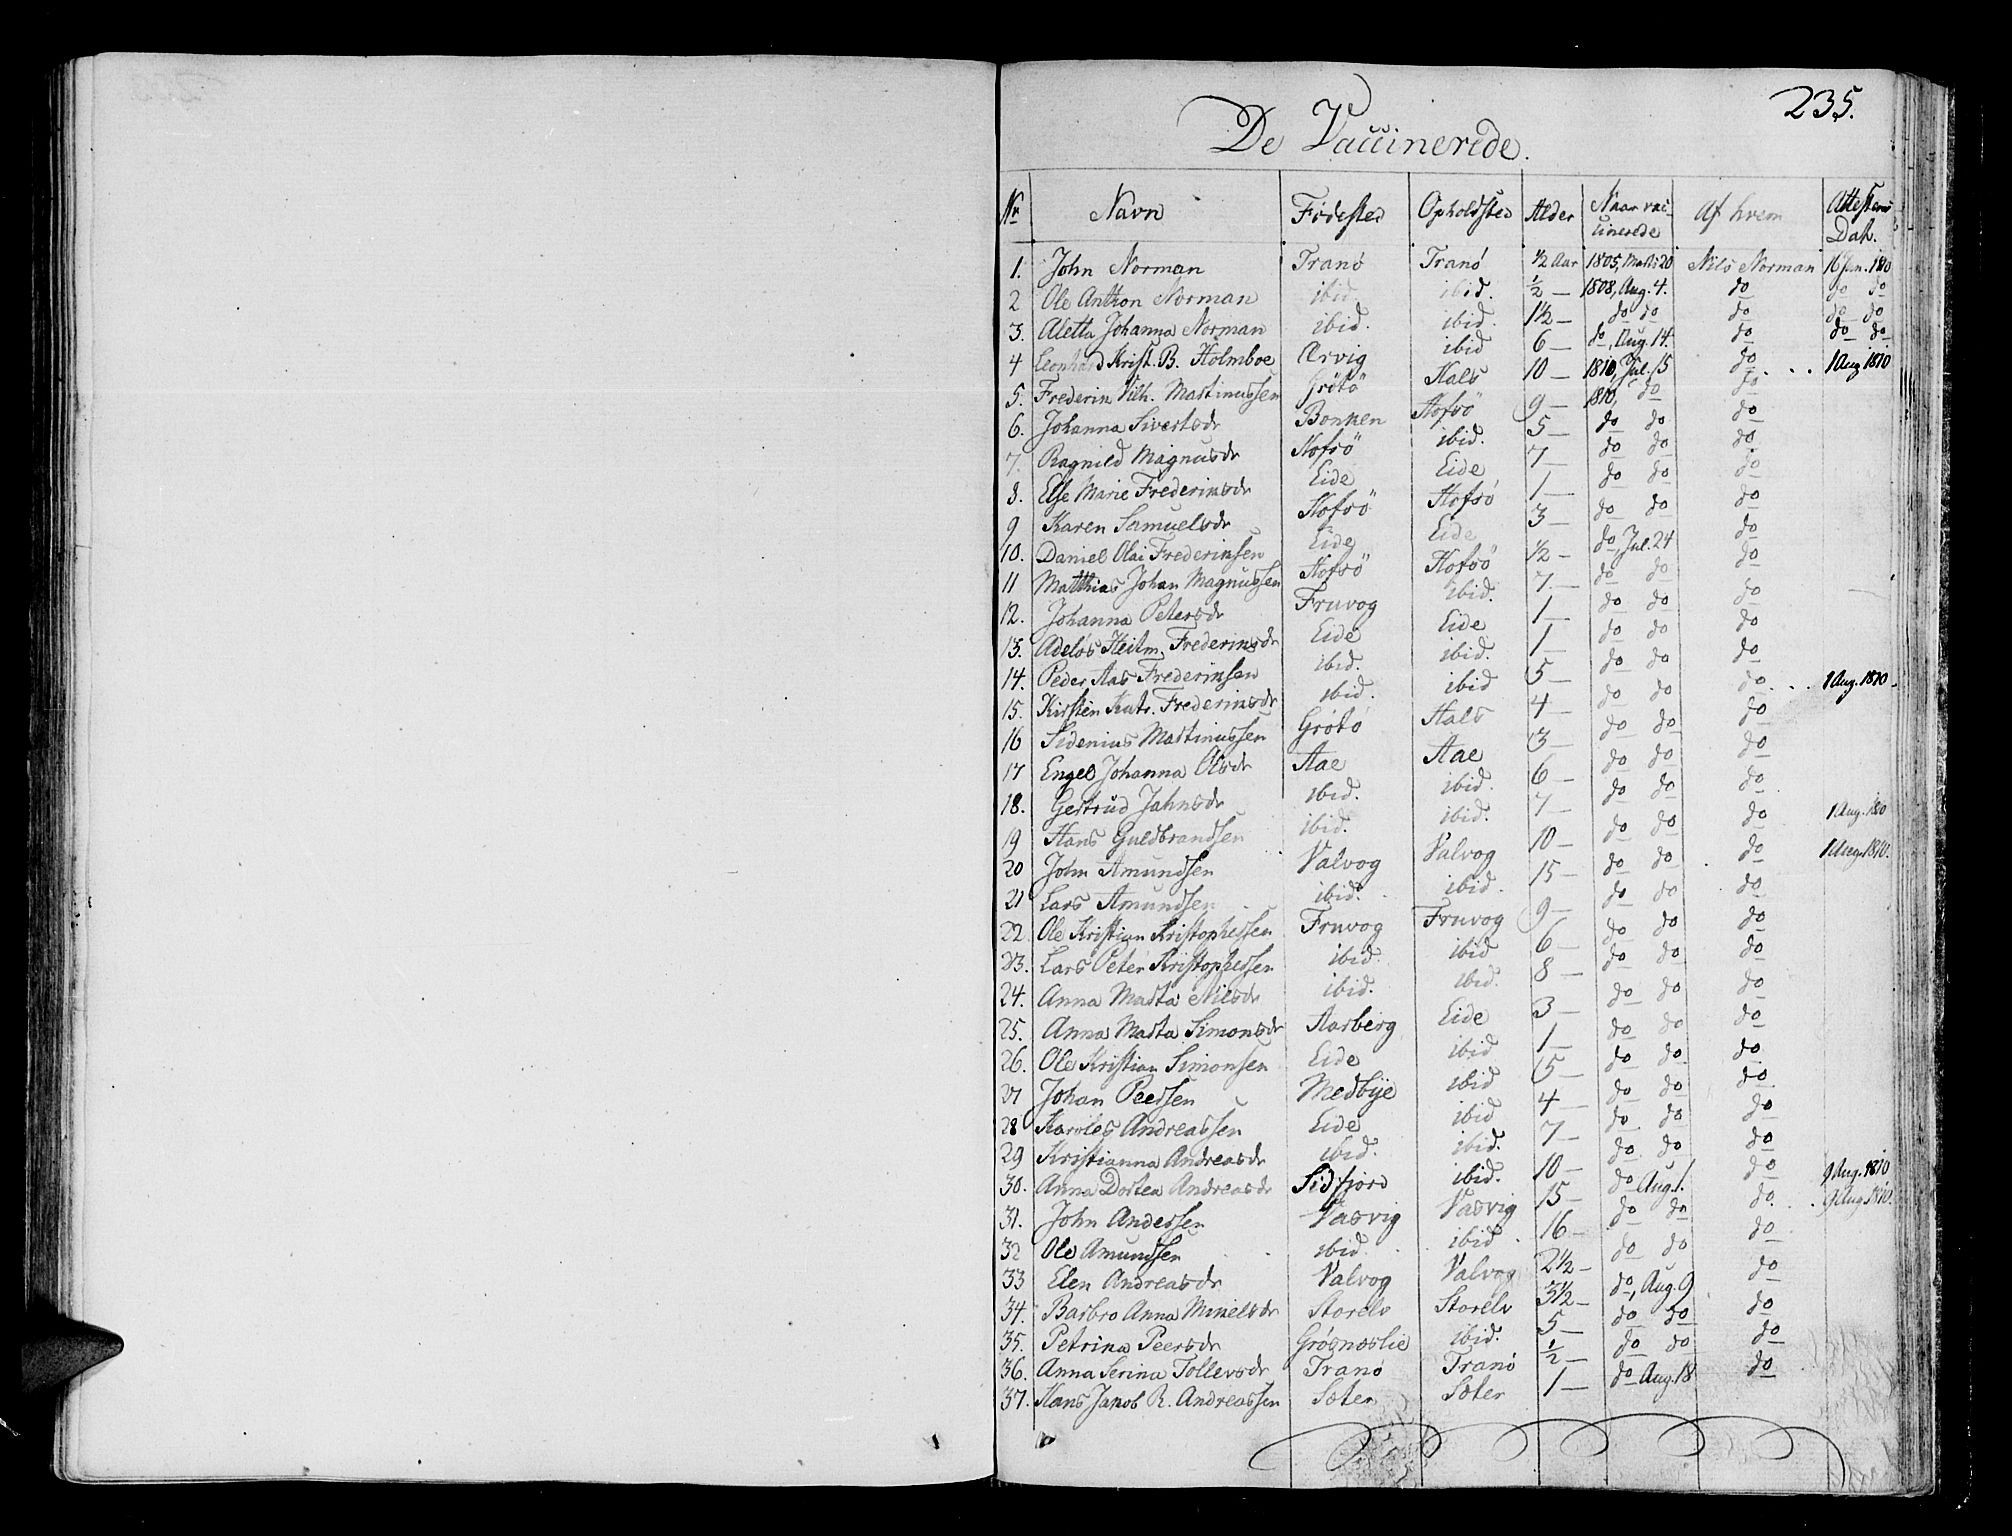 235.
De Vaccinerede.
Nr Navn Fødested Opholdsted Alder Naar vaccinerede Af hvem Attestens Dat.
1. John Norman Tranö Tranö ½ Aar 1805, Marts 20 Nils Norman 16 Jan. 1810
2 Ole Anthon Norman ibid. ibid. ½ — 1808, Aug. 4. do do do
3. Aletta Johanna Norman ibid. ibid. 1½ — do do do do do
4 Leonhard Krist. B. Holmboe Ørvig ibid 6 — do, Aug. 14. do do do
5. Frederik Vilh. Martinussen Grötö Hals 10 — 1810, Jul. 15 do . . . 1 Aug 1810
6. Johanna Sivertsdr Bonken Hofsö 9 — 1810, do do
7. Ragnild Magnusdr Hofsö ibid. 5 — do do do
8. Else Marie Frederiksdr Eide Eide 7 — do do do
9 Karen Samuelsdr Hofsö Hofsö 1 — do do do
10. Daniel Olai Frederiksen Eide Eide 3 — do do do
11 Matthias Johan Magnussen Hofsö Hofsö ½ — do, Jul. 24 do
12. Johanna Petersdr Fruvog ibid. 7 — do do do
13. Adelos Heitm. Frederiksdr Eide Eide 1 — do do do
14. Peder Aas Frederiksen ibid. ibid. 1 — do do do
15. Kirsten Katr. Frederiksdr ibid. ibid 5 — do do do
16 Sidenius Martinussen Grötö Hals 4 — do do do . . . 1 Aug. 1810.
17 Engel Johanna Olsdr Aae Aae 3 — do do do
18. Gertrud Jahnsdr ibid. ibid. 6 — do do do
19 Hans Guldbrandsen ibid. ibid. 7 — do do do
20 John Amundsen Valvog Valvog 10 — do do do 1 Aug. 1810
21 Lars Amundsen ibid. ibid. 15 — do do do 1 Aug. 1810.
22. Ole Kristian Kristophersen Fruvog Fruvog 9 — do do do
23. Lars Peter Kristophersen ibid. ibid 6 — do do do
24. Anna Marta Nilsdr ibid. ibid. 8 — do do do
25. Anna Marta Simonsdr Aarberg Eide 3 — do do do
26. Ole Kristian Simonsen Eide ibid 1 — do do do
27 Johan Peersen Medbye ibid 15 — do do do
28 Karoles Andreassen Eide ibid 4 — do do do
29 Kristianna Andreasdr ibid. ibid. 7 — do do do
30. Anna Dortea Andreasdr Sidfjord ibid. 10 — do do do
31. John Andersen Vasvig Vasvig 15 — do Aug. 1. do 9 Aug. 1810
32 Ole Amundsen ibid. ibid. 16 — do do do . . 9 Aug 1810.
33 Elen Andreasdr Valvog Valvog 2½ — do do do
34. Barbro Anna Mikelsdr Storelv Storelv 3½ — do, Aug. 9 do
35. Petrina Peersdr Grösnæslie ibid. 5 — do do do
36. Anna Serina Tollevsdr Tranö Tranö ½ — do do do
37. Hans Jakob R. Andreassen Sæter Sæter 1 — do Aug. 18 do